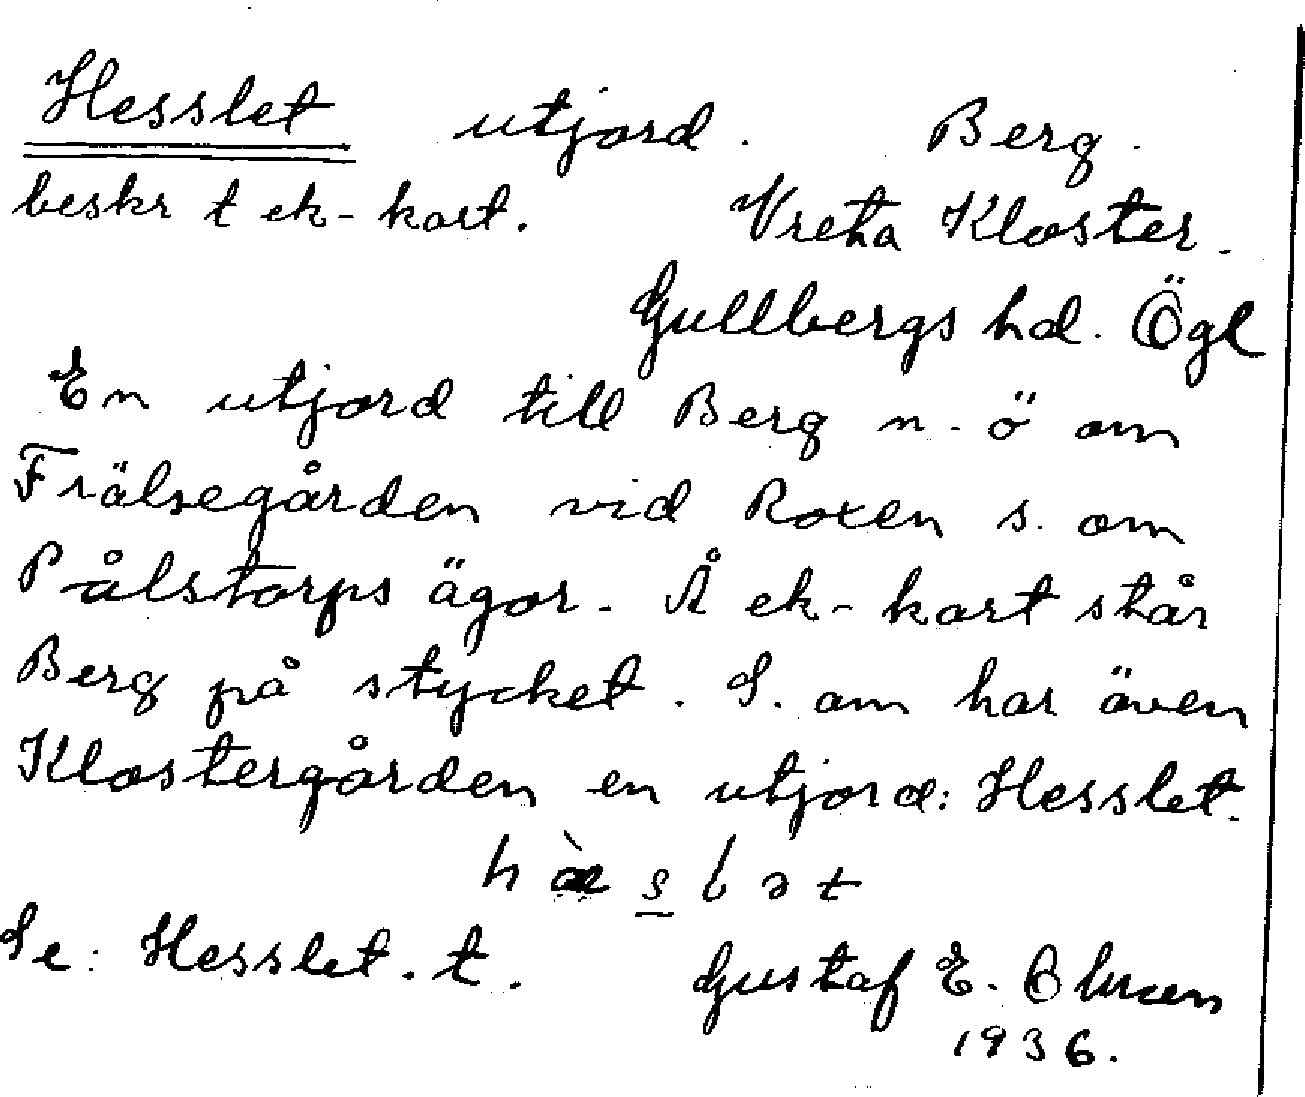 Hesslet utjord. Berg.
beskr t ek-kart. Vreta Kloster.
Gullbergs hd. Ögl
En utjord till Berg n. ö om
Frälsegården vid Roxen s. om
Pålstorps ägor. Å ek-kart står
Berg på stycket. S. om har även
Klostergården en utjord: Hesslet.
Se: Hesslet. t. Gustaf E.
1936.